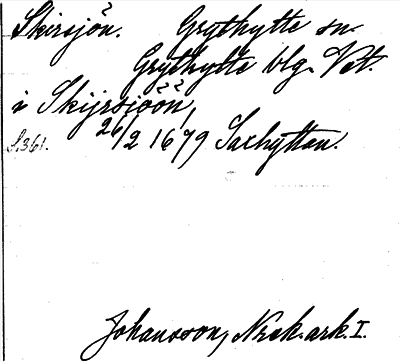 Skirsjön. Grythytte sn.
Grythytte blg. Vst.
i Skijrsiöön,
S. 361. 26/2 1679 Saxhyttan.
Johansson, Nzek.ark. I.